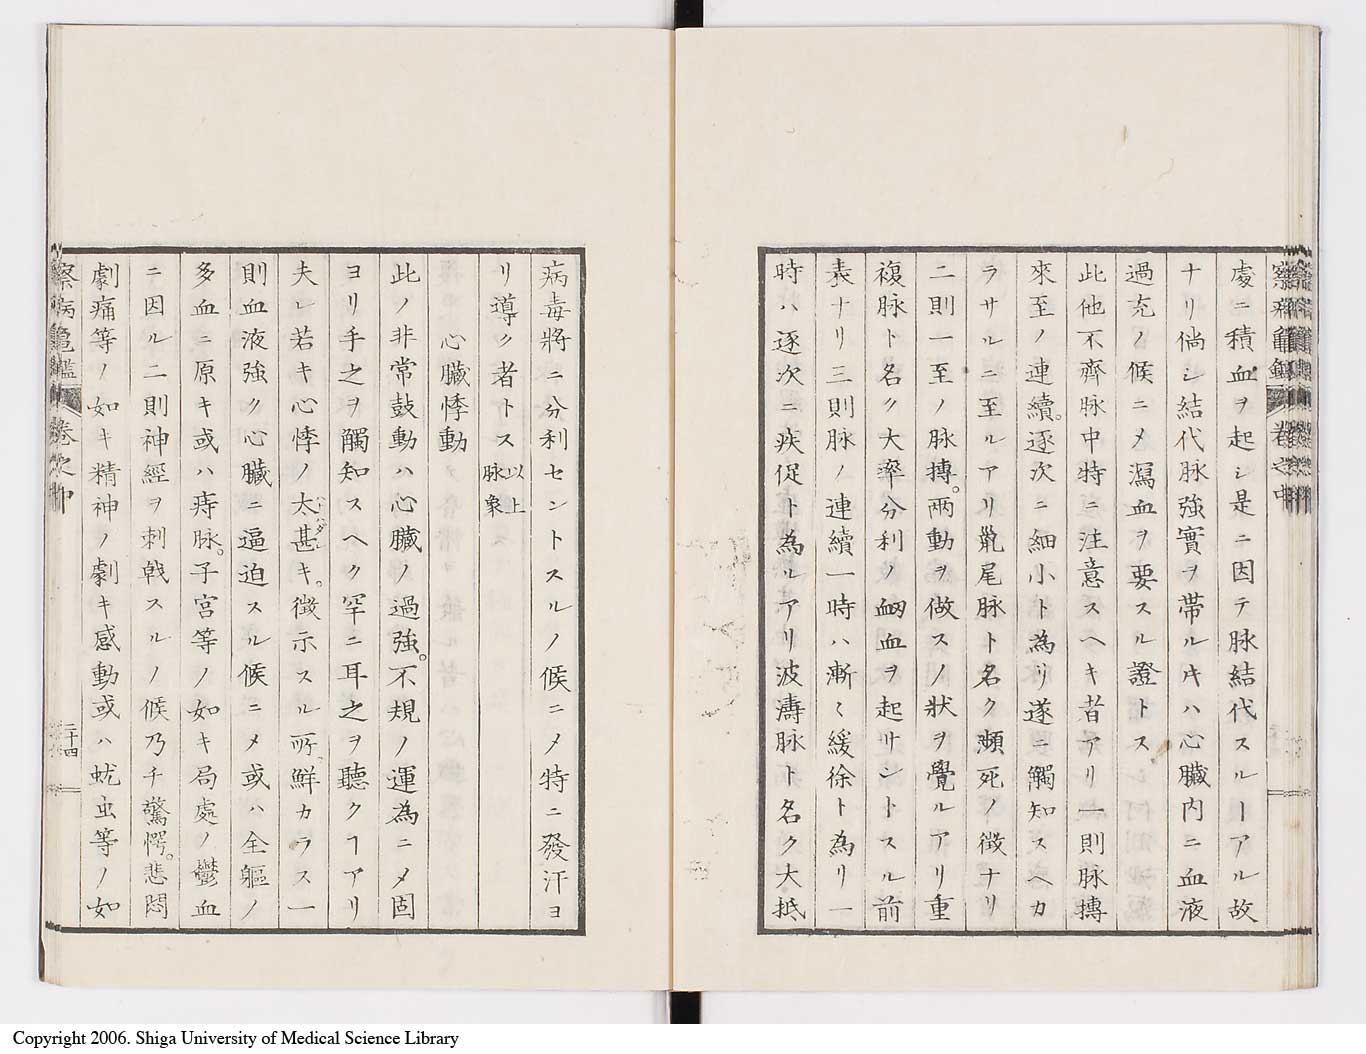 處ニ積血ヲ起シ是ニ因テ脉結代スルヿアル故
ナリ倘シ結代脉強實ヲ帶ルキハ心臓内ニ血液
過充ノ候ニメ瀉血ヲ要スル證トス
此他不齊脉中特ニ注意スヘキ者アリ一則脉搏
來至ノ連續。逐次ニ細小ト為リ遂ニ觸知スヘカ
ラサルニ至ルアリ鼠尾脉ト名ク瀕死ノ徴ナリ
二則一至ノ脉搏。兩動ヲ做スノ狀ヲ覺ルアリ重
複脉ト名ク大率分利ノ衂血ヲ起サントスル前
表ナリ三則脉ノ連續一時ハ漸〻緩徐ト為リ一
時ハ逐次ニ疾促ト為ルアリ波濤脉ト名ク大抵
病毒將ニ分利セントスルノ候ニメ特ニ發汗ヨ
リ導ク者トス以上脉象
心臓悸動
此ノ非常鼓動ハ心臓ノ過強。不規ノ運為ニメ固
ヨリ手之ヲ觸知スヘク罕ニ耳之ヲ聽クヿアリ
夫レ若キ心悸ノ太甚キ。徴示スル所。鮮カラス一
則血液強ク心臓ニ逼迫スル候ニメ或ハ全軀ノ
多血ニ原キ或ハ痔脉。子宮等ノ如キ局處ノ鬱血
ニ因ル二則神經ヲ刺戟スルノ候乃チ驚愕。悲悶
劇痛等ノ如キ精神ノ劇キ感動或ハ蚘虫等ノ如
察病龜鑑 卷之中
二十四
Copyright 2006. Shiga University of Medical Science Library